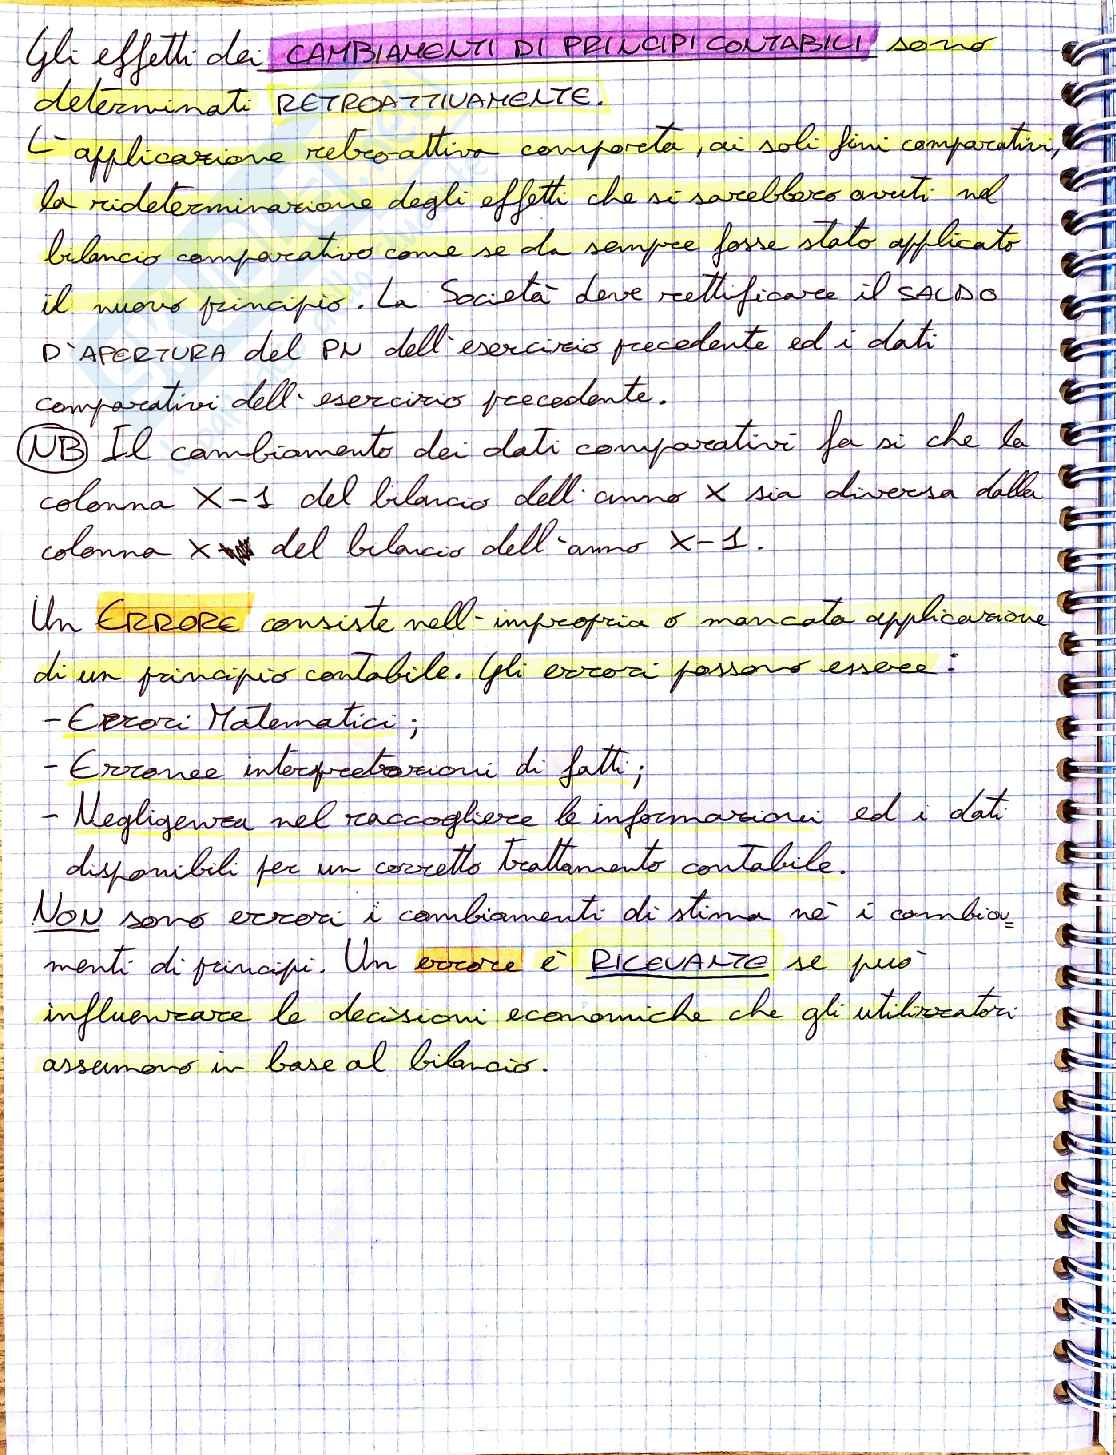 Gli effetti dei CAMBIAMENTI DI PRINCIPI CONTABILI sono
determinati RETROATTIVAMENTE.
L'applicazione retroattiva comporta, ai soli fini comparativi,
la rideterminazione degli effetti che si sarebbero avuti nel
bilancio comparativo come se da sempre fosse stato applicato
il nuovo principio. La Società deve rettificare il SALDO
D'APERTURA del PN dell'esercizio precedente ed i dati
comparativi dell'esercizio precedente.
NB Il cambiamento dei dati comparativi fa si che la
colonna X-1 del bilancio dell'anno X sia diversa dalla
colonna X del bilancio dell'anno X-1.
Un ERRORE consiste nell'impropria o mancata applicazione
di un principio contabile. Gli errori possono essere:
- Errori Matematici;
- Erronee interpretazioni di fatti;
- Negligenza nel raccogliere le informazioni ed i dati
disponibili per un corretto trattamento contabile.
NON sono errori i cambiamenti di stima nè i cambia=
menti di principi. Un errore è RILEVANTE se può
influenzare le decisioni economiche che gli utilizzatori
assumono in base al bilancio.